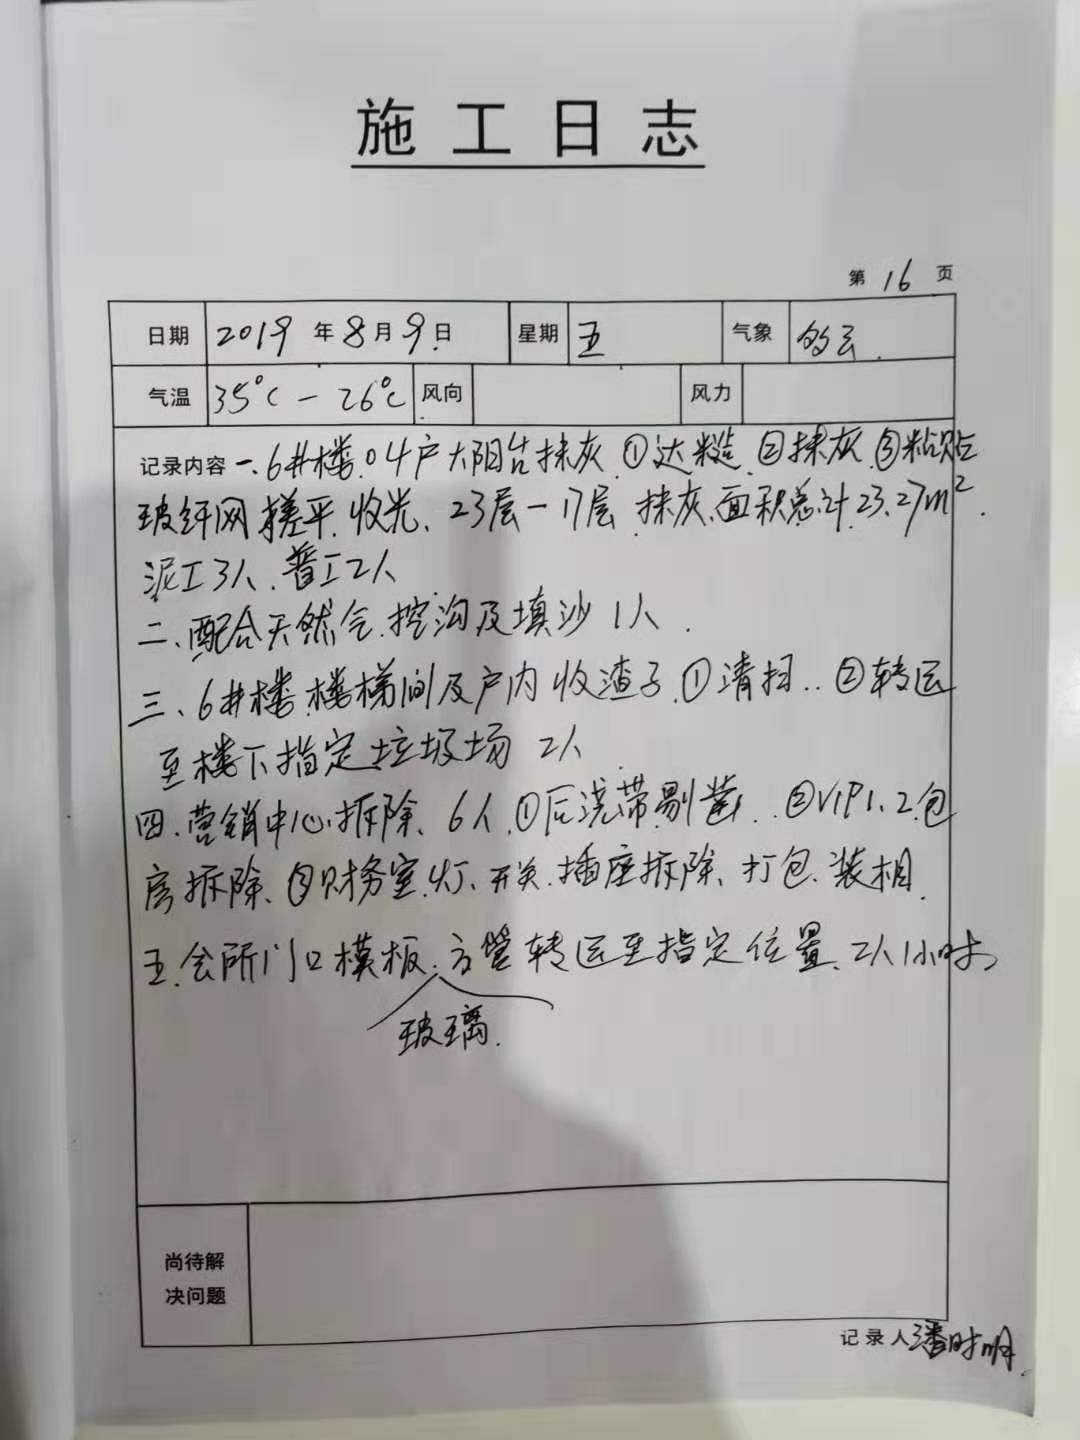 施工日志
第 16 页
日期 2019 年 8 月 9 日 星期 五 气象 多云.
气温 35℃ - 26℃ 风向 风力
记录内容 一、6#楼.04户大阳台抹灰.①达糙.②抹灰.③粘贴
玻纤网.搓平.收光、23层-17层.抹灰.面积总计.23.27m².
泥工3人、普工2人
二、配合天然气.挖沟及填沙 1人.
三、6#楼.楼梯间及户内收渣子.①清扫..②转运
至楼下指定垃圾场 2人
四.营销中心.拆除、6人.①后浇带剔凿..②VIP1、2包
房拆除、③财务室.灯、开关.插座拆除、打包.装相.
五.会所门口模板.方管转运至指定位置.2人1小时
玻璃.
尚待解
决问题
记录人 潘时明